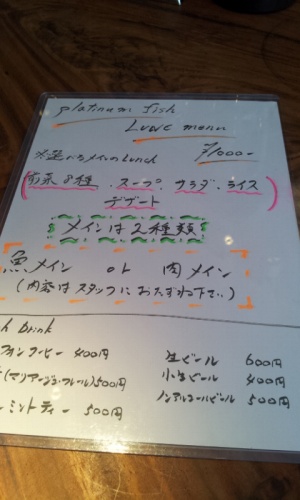 platinum fish
Lunch menu
※選べるメインのLunch ¥1000-
(前菜8種・スープ・サラダ・ライス
デザート)
メインは2種類
魚メイン or 肉メイン
(内容はスタッフにおたずね下さい)
Drink
コーヒー 400円 生ビール 600円
(マリアージュフレール) 500円 小生ビール 400円
ミントティー 500円 ノンアルコールビール 500円